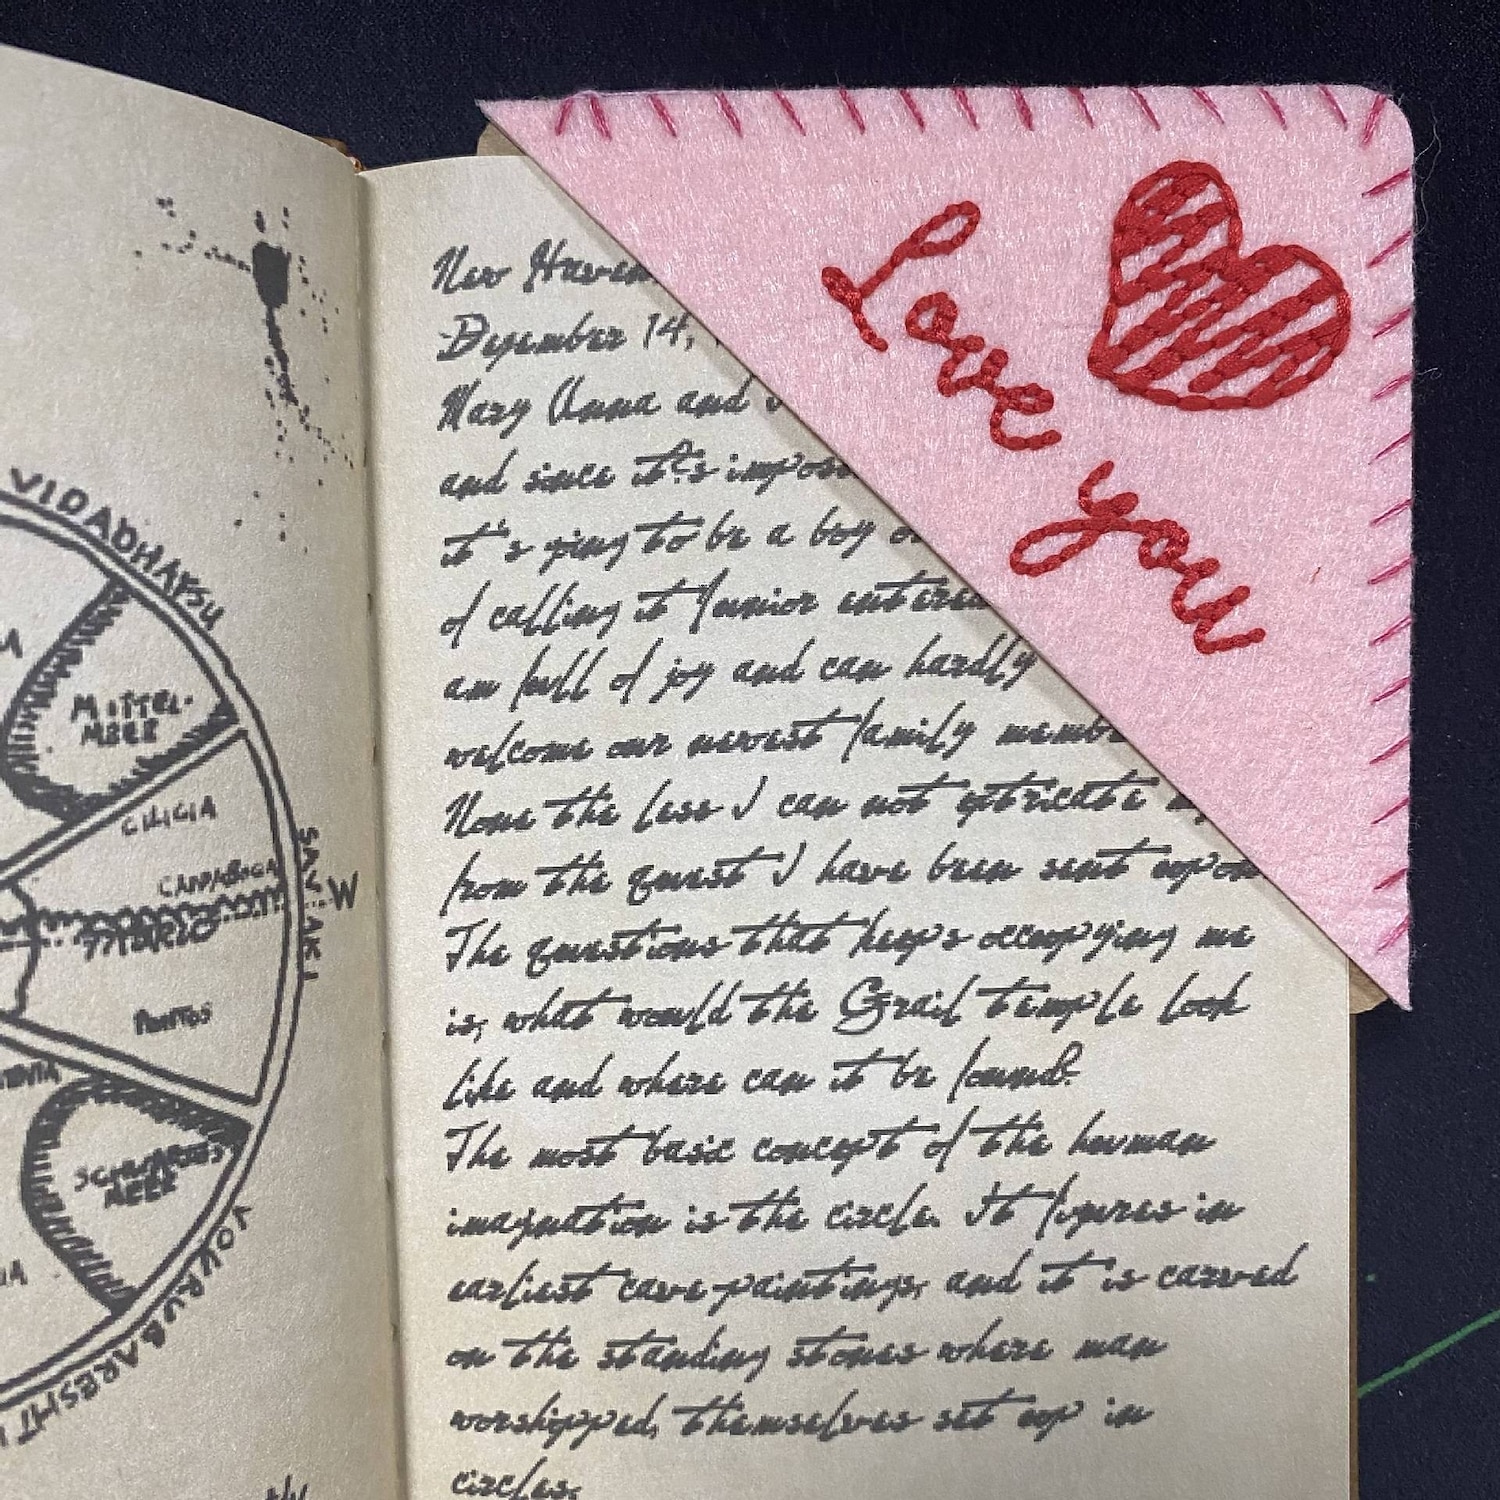 VIDADHAFSU
MITTEL-
MEER
CILICIA
PONTOS
W
New Haven
December 14,
Mary Anna and
and since it's impos
it's going to be a boy or
of calling it Junior
am full of joy and can hardly
welcome our newest family membe
None the less I can not extricate my
from the quest I have been sent upon
The questions that keeps occupying me
is, what would the Grail temple look
like and where can it be found?
The most basic concept of the human
imagination is the circle. It figures in
earliest cave paintings, and it is carved
on the standing stones where man
worshipped, themselves set up in
circles.
Love you